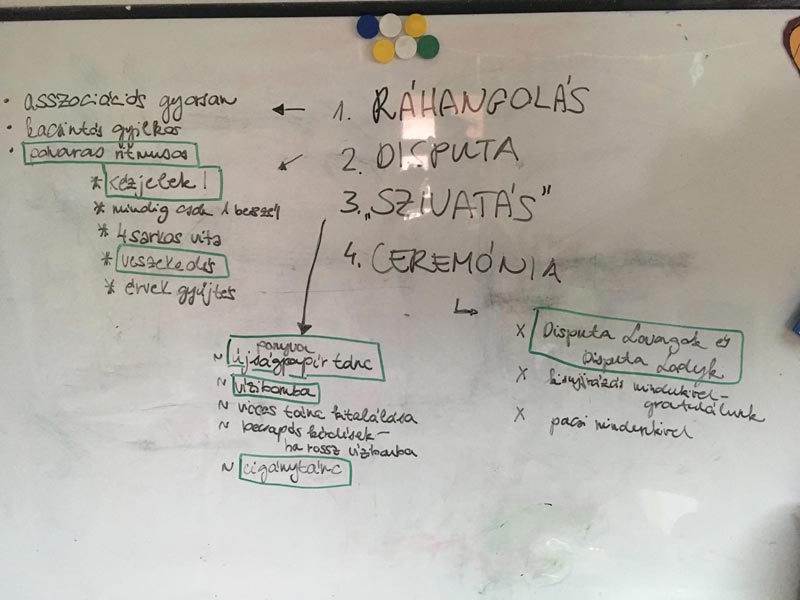 1. RÁHANGOLÁS
• asszociációs gyorsan
• kacsintós gyilkos
• poharas ritmusos
2. DISPUTA
* kézjelek!
* mindig csak 1 beszél
* 4 sarkos vita
* veszekedés
* érvek gyűjtés
3. „SZIVATÁS"
ponyva
~ újságpapír tánc
~ vízibomba
~ vicces tánc kitalálása
~ becsapós kérdések –
ha rossz vízibomba
~ cigánytánc
4. CEREMÓNIA
x Disputa Lovagok és
Disputa Ladyk
x kisujjrázás mindenkivel –
gratulálunk
x pacsi mindenkivel